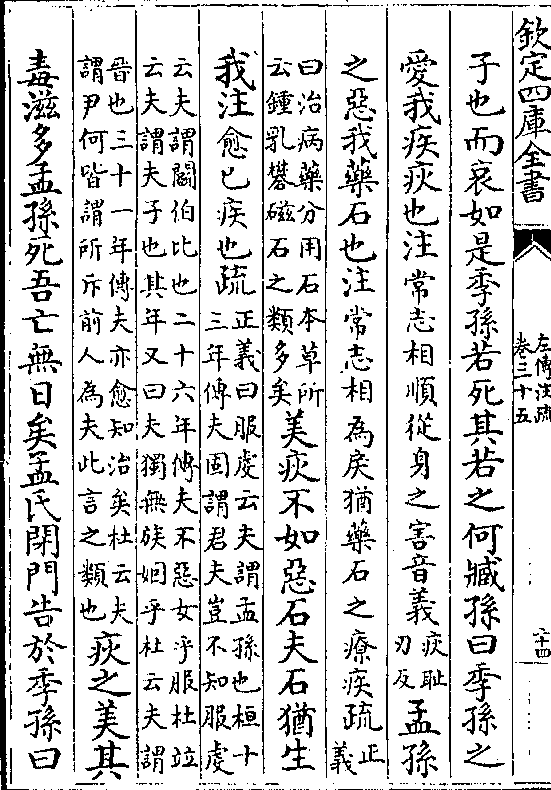 欽定四庫全書
左傳注疏
卷三十五
二十四
子也而哀如是季孫若死其若之何臧孫曰季孫之
愛我疾疢也注常志相順從身之害音義疢耻
刃反孟孫
之惡我藥石也注常志相為戾猶藥石之療疾疏正
義
曰治病藥分用石本草所
云鍾乳礬磁石之類多矣美疢不如惡石夫石猶生
我注愈已疾也疏正義曰服虔云夫謂孟孫也桓十
三年傳夫固謂君夫豈不知服虔
云夫謂鬬伯比也二十六年傳夫不惡女乎服杜竝
云夫謂夫子也其年又曰夫獨無族姻乎杜云夫謂
晉也三十一年傳夫亦愈知治矣杜云夫
謂尹何皆謂所斥前人為夫此言之類也疢之美其
毒滋多孟孫死吾亡無日矣孟氏閉門告於季孫曰